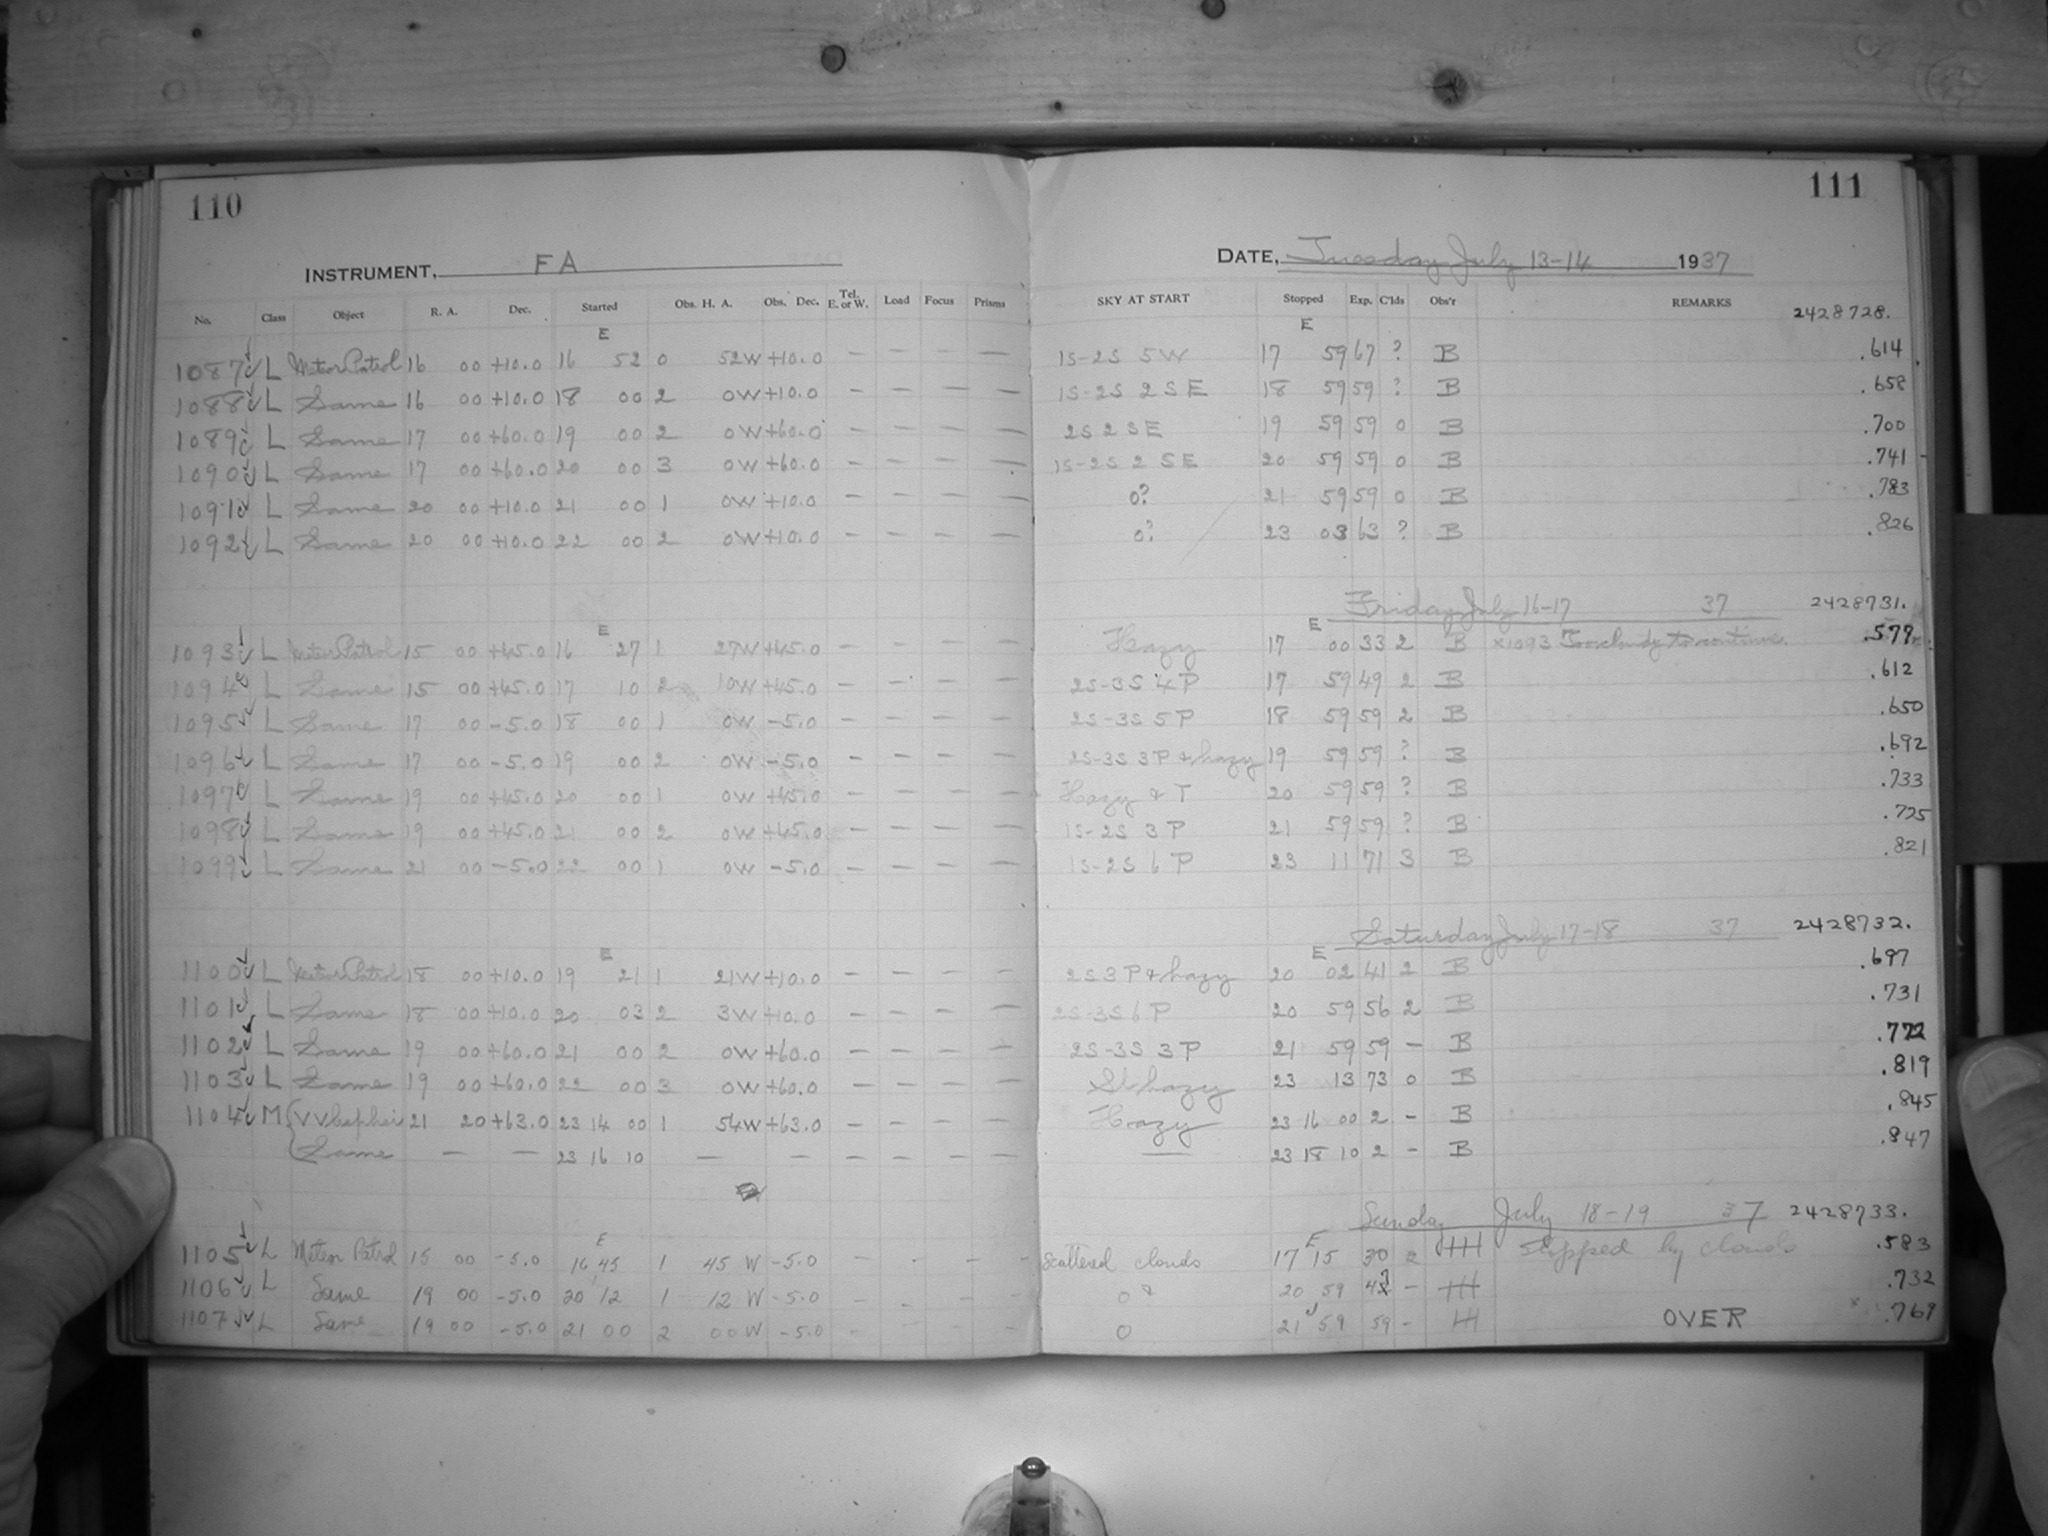 110
INSTRUMENT, FA
No. Class Object R. A. Dec. Started Obs. H. A. Obs. Dec. Tel. E. or W. Load Focus Prisms
E
1087 L Meteor Patrol 16 00 +10.0 16 52 0 52W +10.0 — — — —
1088 L Same 16 00 +10.0 18 00 2 0W +10.0 — — — —
1089 L Same 17 00 +60.0 19 00 2 0W +60.0 — — — —
1090 L Same 17 00 +60.0 20 00 3 0W +60.0 — — — —
1091 L Same 20 00 +10.0 21 00 1 0W +10.0 — — — —
1092 L Same 20 00 +10.0 22 00 2 0W +10.0 — — — —
E
1093 L Meteor Patrol 15 00 +45.0 16 27 1 27W +45.0 — — — —
1094 L Same 15 00 +45.0 17 10 2 10W +45.0 — — — —
1095 L Same 17 00 -5.0 18 00 1 0W -5.0 — — — —
1096 L Same 17 00 -5.0 19 00 2 0W -5.0 — — — —
1097 L Same 19 00 +45.0 20 00 1 0W +45.0 — — — —
1098 L Same 19 00 +45.0 21 00 2 0W +45.0 — — — —
1099 L Same 21 00 -5.0 22 00 1 0W -5.0 — — — —
E
1100 L Meteor Patrol 18 00 +10.0 19 21 1 21W +10.0 — — — —
1101 L Same 18 00 +10.0 20 03 2 3W +10.0 — — — —
1102 L Same 19 00 +60.0 21 00 2 0W +60.0 — — — —
1103 L Same 19 00 +60.0 22 00 3 0W +60.0 — — — —
1104 M VV Cephei 21 20 +63.0 23 14 00 1 54W +63.0 — — — —
Same — — 23 16 10 — — — — — —
E
1105 L Meteor Patrol 15 00 -5.0 16 45 1 45 W -5.0 — — — —
1106 L Same 19 00 -5.0 20 12 1 12 W -5.0 — — — —
1107 L Same 19 00 -5.0 21 00 2 00W -5.0 — — — —
111
DATE, Tuesday July 13-14 1937
SKY AT START Stopped Exp. C'lds Obs'r REMARKS 2428728.
E
1S-2S 5W 17 59 67 ? B .614
1S-2S 2SE 18 59 59 ? B .658
2S 2SE 19 59 59 0 B .700
1S-2S 2 SE 20 59 59 0 B .741
0? 21 59 59 0 B .783
0? 23 03 63 ? B .826
Friday July 16-17 37 2428731.
E
Hazy 17 00 33 2 B x1093 Too cloudy to continue. .577
2S-3S 4P 17 59 49 2 B .612
2S-3S 5P 18 59 59 2 B .650
2S-3S 3P & hazy 19 59 59 ? B .692
Hazy & T 20 59 59 ? B .733
1S-2S 3P 21 59 59 ? B .725
1S-2S 6P 23 11 71 3 B .821
Saturday July 17-18 37 2428732.
E
2S 3P & hazy 20 02 41 2 B .697
2S-3S 6P 20 59 56 2 B .731
2S-3S 3P 21 59 59 — B .772
Sl hazy 23 13 73 0 B .819
Hazy 23 16 00 2 — B .845
— 23 18 10 2 — B .847
Sunday July 18-19 37 2428733.
E
Scattered clouds 17 15 30 2 HH stopped by clouds .583
0 20 59 47 — HH .732
0 21 59 59 — HH OVER .769